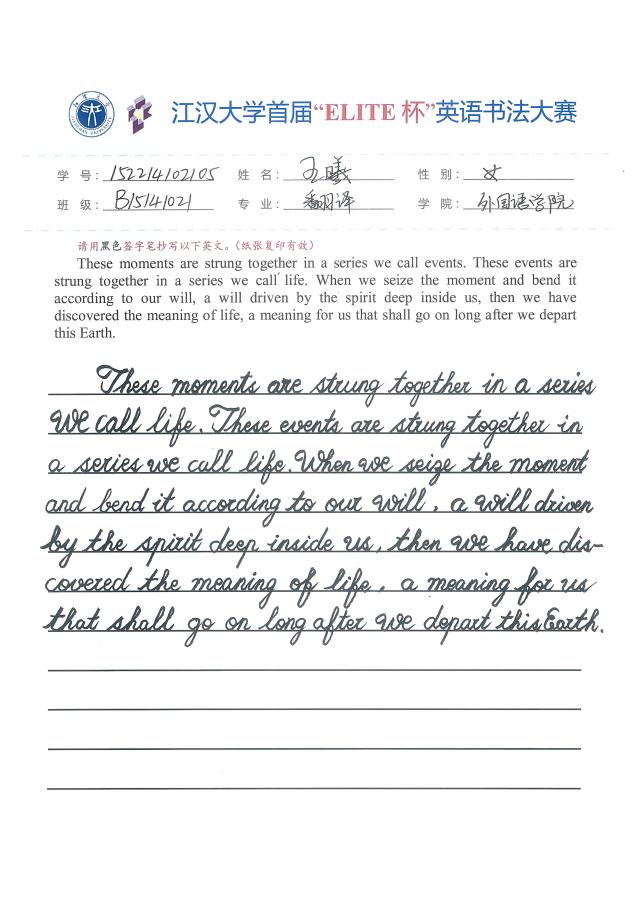 江汉大学首届“ELITE 杯”英语书法大赛
学 号: 152214102105 姓 名: 王曦 性 别: 女
班 级: B15141021 专 业: 翻译 学 院: 外国语学院
请用黑色签字笔抄写以下英文。(纸张复印有效)
These moments are strung together in a series we call events. These events are
strung together in a series we call life. When we seize the moment and bend it
according to our will, a will driven by the spirit deep inside us, then we have
discovered the meaning of life, a meaning for us that shall go on long after we depart
this Earth.
These moments are strung together in a series
we call life. These events are strung together in
a series we call life. When we seize the moment
and bend it according to our will, a will driven
by the spirit deep inside us, then we have dis-
covered the meaning of life, a meaning for us
that shall go on long after we depart this Earth.